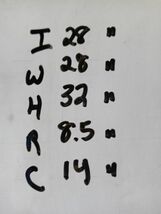 I 28 "
W 28 "
H 32 "
R 8.5 "
C 14 "